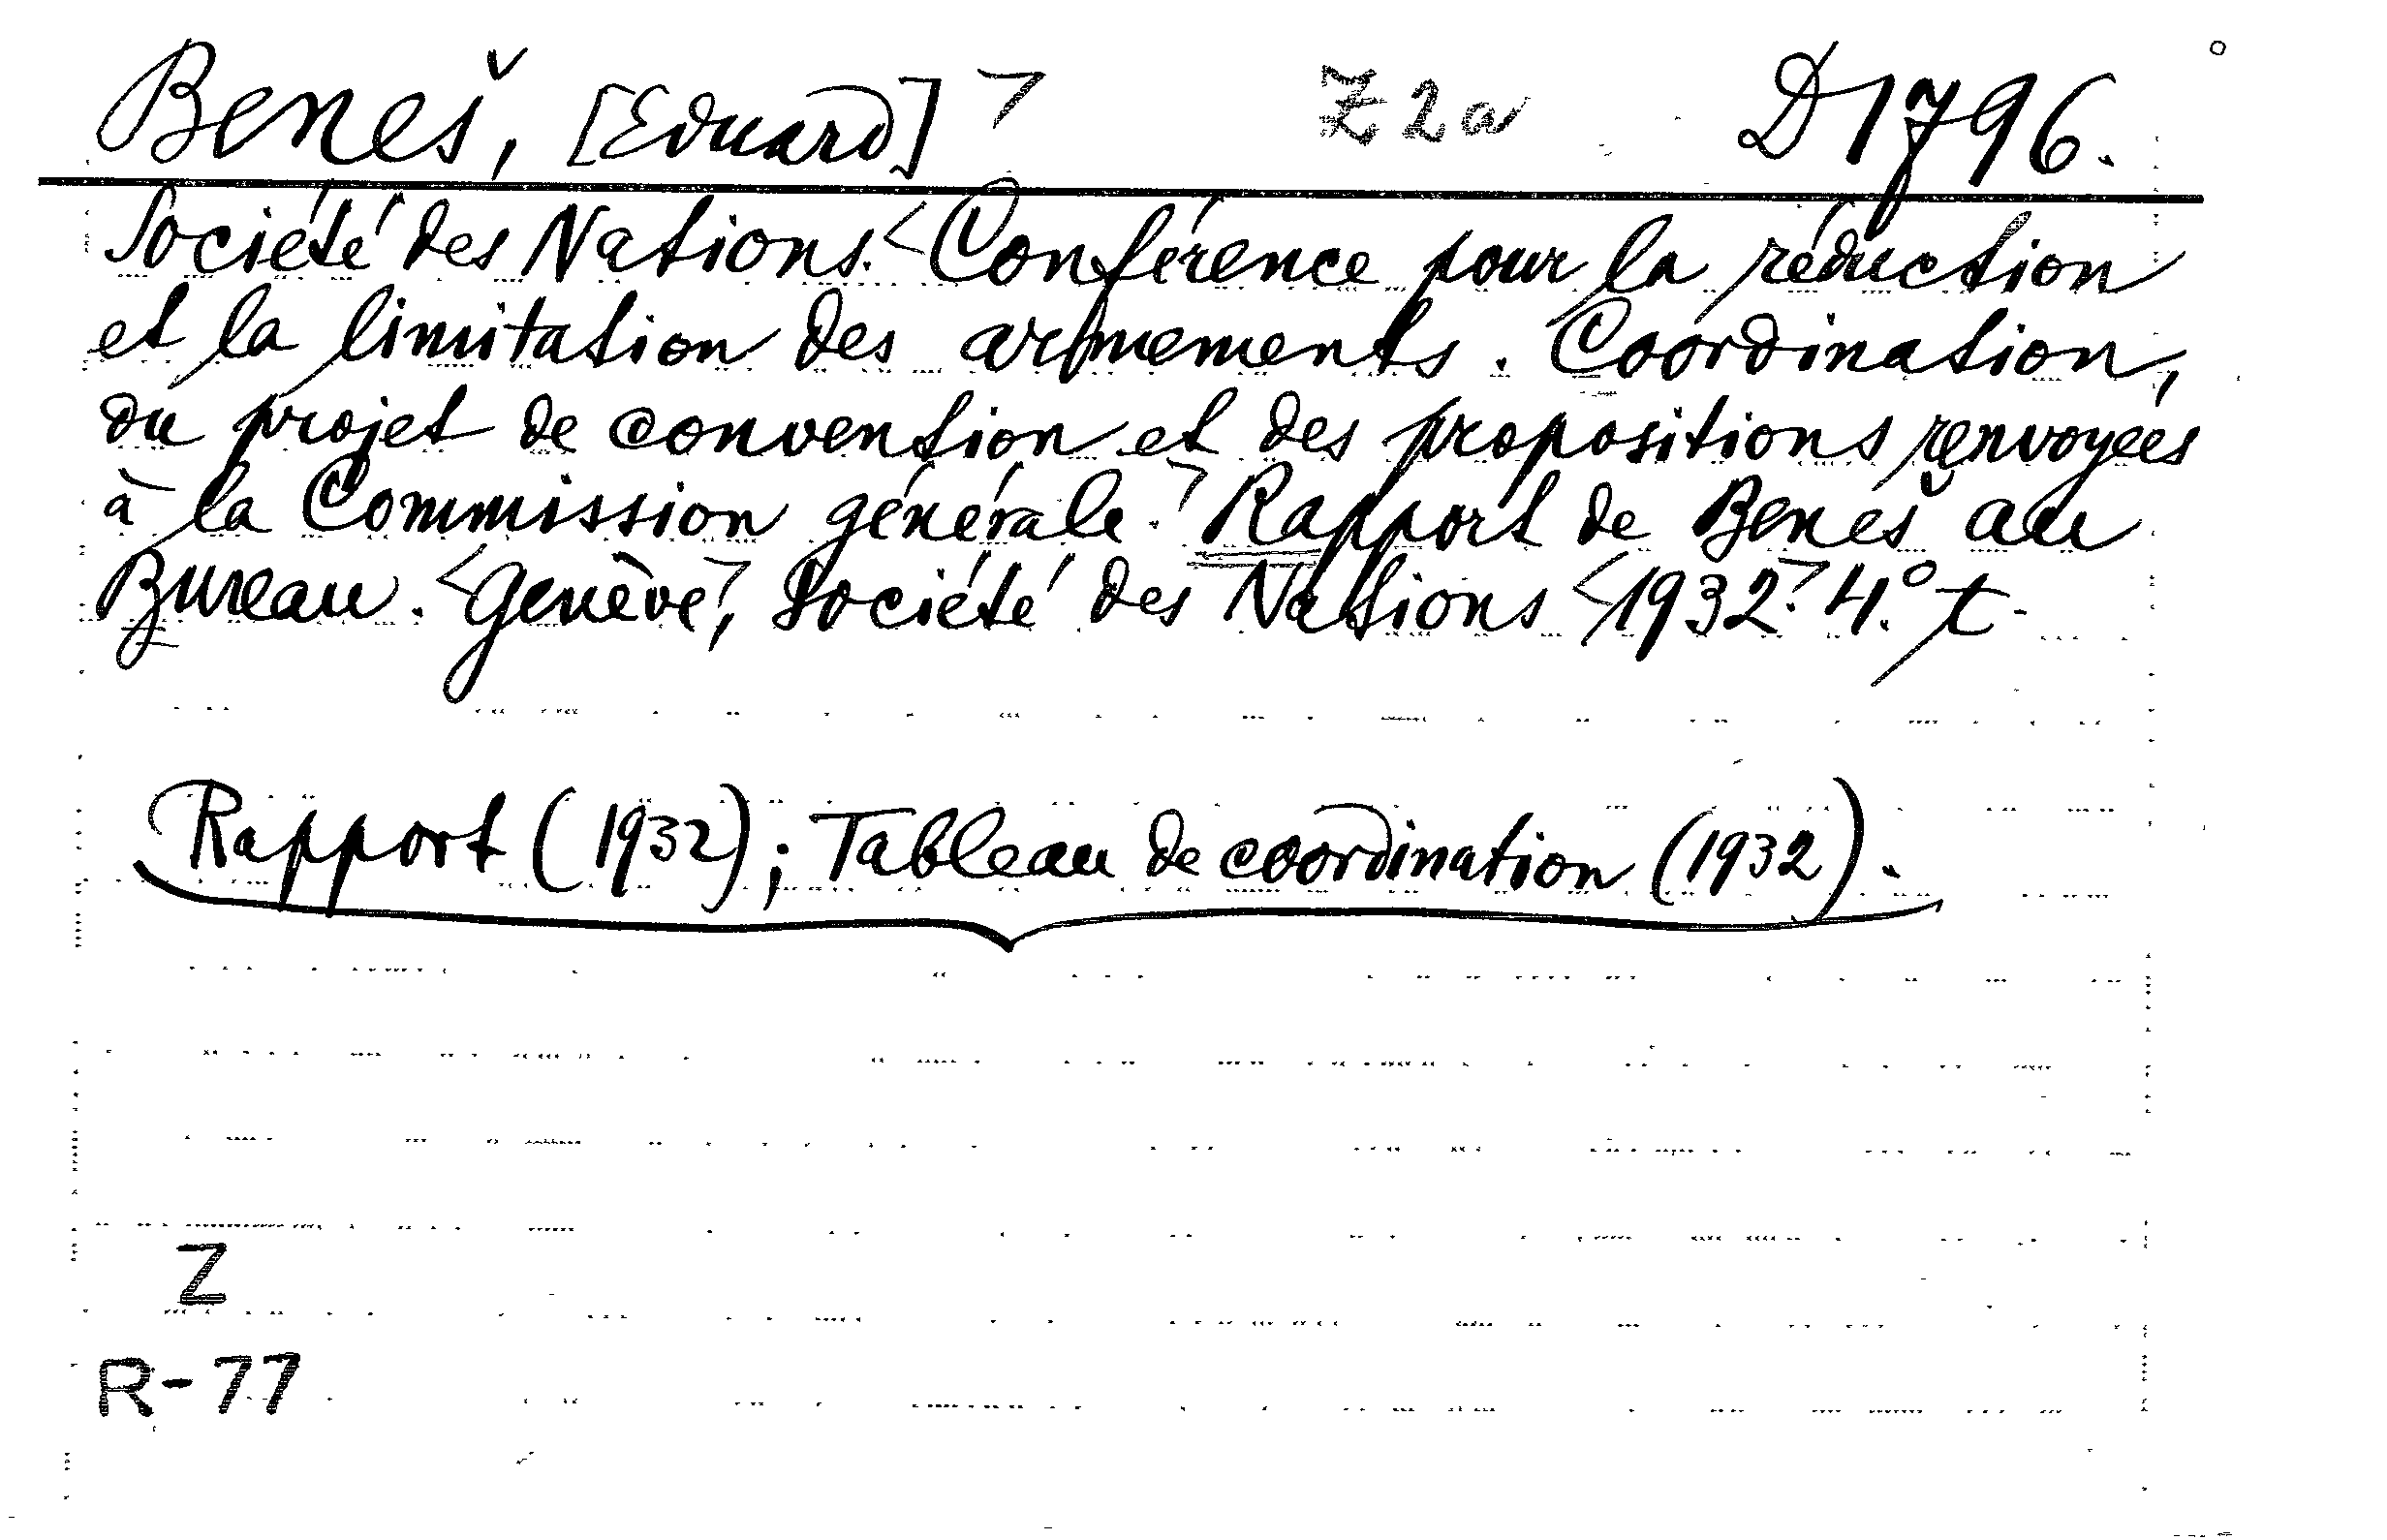 Beneš, [Eduard] > Z 2a D 1796.
Société des Nations. <Conférence pour la réduction
et la limitation des armements. Coordination,
du projet de convention et des propositions renvoyées
à la Commission générale.> Rapport de Beneš au
Bureau. <Genève>, Société des Nations <1932>. 4.° t.
Rapport (1932); Tableau de coordination (1932).
Z
R-77